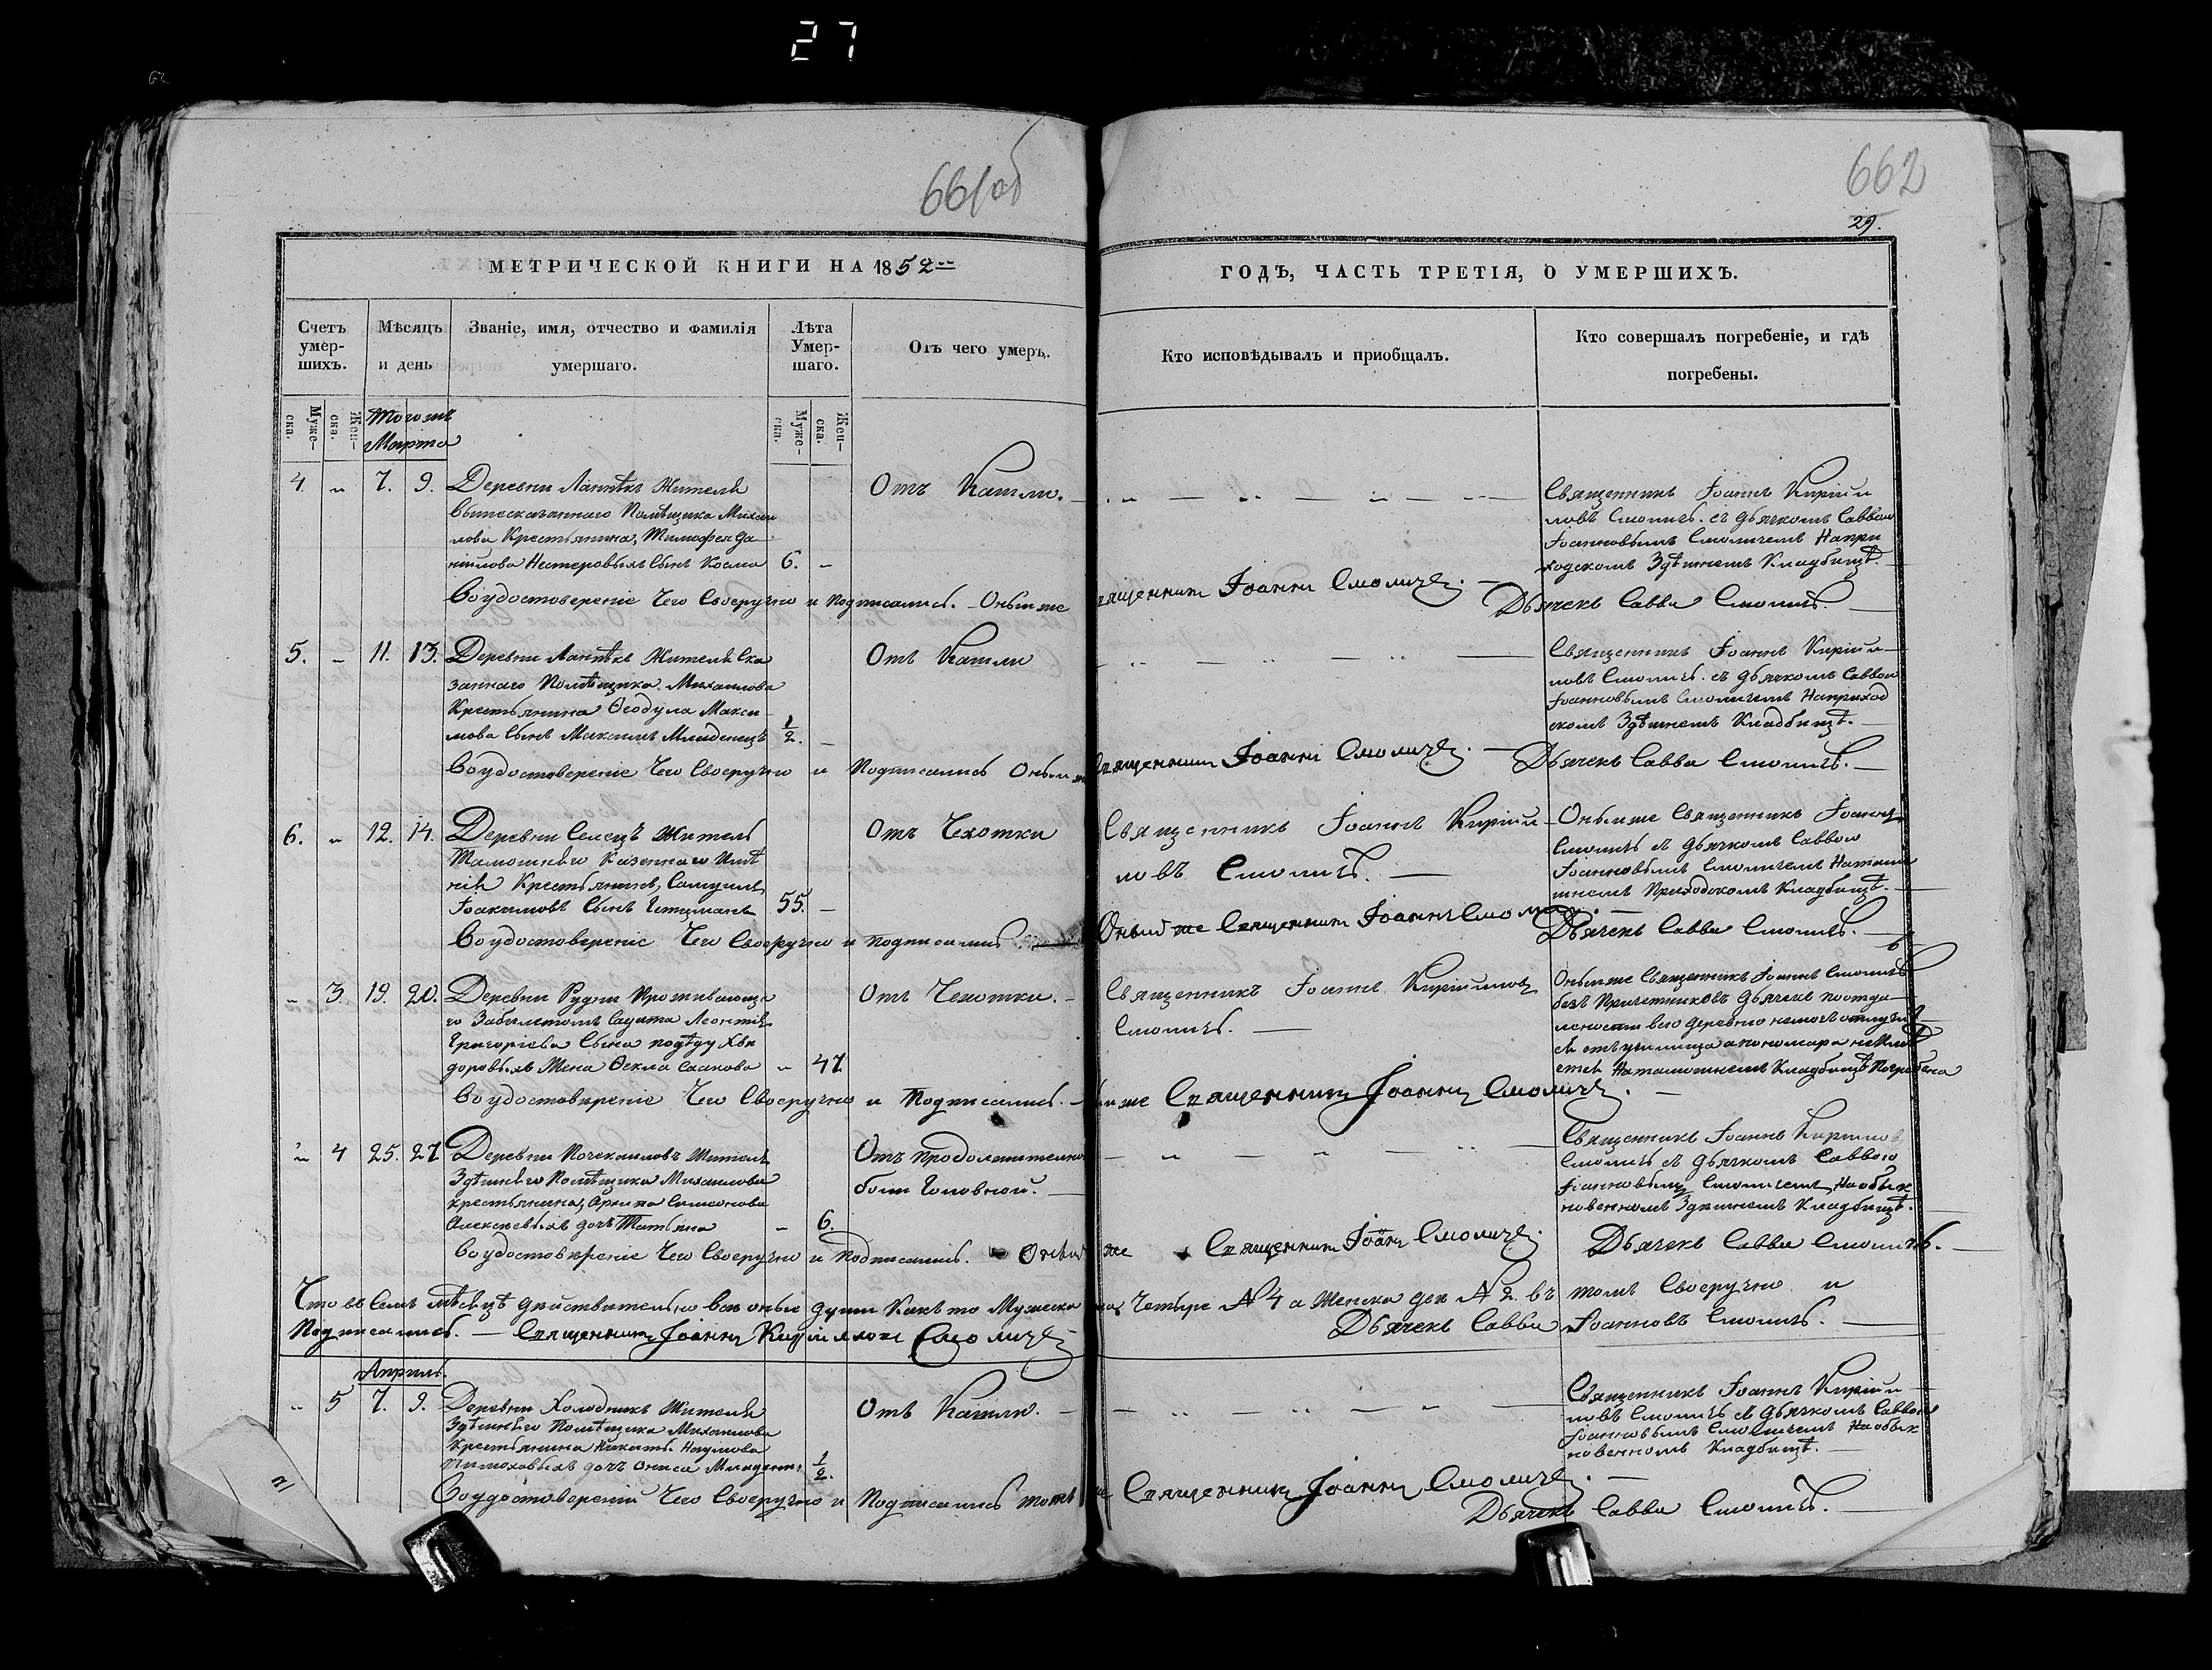 27
661об
662
29.
МЕТРИЧЕСКОЙ КНИГИ НА 1852
ГОДЪ, ЧАСТЬ ТРЕТІЯ, О УМЕРШИХЪ.
Счетъ умер-шихъ.
Мѣсяцъ и день
Званіе, имя, отчество и фамилія умершаго.
Лѣта Умер-шаго.
Отъ чего умеръ.
Кто исповѣдывалъ и приобщалъ.
Кто совершалъ погребеніе, и гдѣ погребены.
Муже-ска.
Жен-ска.
Муже-ска.
Жен-ска.
Того жъ
Марта
4 „ 7. 9.
Деревни Жителя
Вышесказаннаго Помѣщика Михаи
лова Крестьянина, Тимофея Да
ніилова Нестеровыхъ Сынъ Косма 6. –
Отъ Кашли.
Священникъ Іоаннъ Киріил
ловъ Смоличъ. съ Дьячкомъ Саввою
Іоанновымъ Смоличемъ На при
ходскомъ Здѣшнемъ Кладбищѣ.
Во удостовереніе Чего Своеручно и Подписались. – Оный же Священникъ Іоаннъ Смоличъ.
Дьячекъ Савва Смоличъ.
5. – 11. 13.
Деревни Жителя Ска
заннаго Помѣщика Михаилова
Крестьянина Ѳеодула Макси
мова Сынъ Максимъ Младенецъ 1/2. –
Отъ Кашли
Священникъ Іоаннъ Киріил
ловъ Смоличъ. съ Дьячкомъ Саввою
Іоанновымъ Смоличемъ На приход
скомъ Здѣшнемъ Кладбищѣ.
Во удостовереніе Чего Своеручно и Подписались Оный же Священникъ Іоаннъ Смоличъ.
Дьячекъ Савва Смоличъ.
6. „ 12. 14.
Деревни Селецъ Житель
Тамошняго Казеннаго Имѣ
нія Крестьянинъ, Самуилъ
Іоакимовъ Сынъ 55. –
Отъ Чехотки
Священникъ Іоаннъ Киріил
ловъ Смоличъ.
Оный же Священникъ Іоаннъ
Смоличъ съ Дьячкомъ Саввою
Іоанновымъ Смоличемъ На тамо
шнемъ Приходскомъ Кладбищѣ.
Во удостовереніе Чего Своеручно и Подписались
Оный же Священникъ Іоаннъ Смоличъ.
Дьячекъ Савва Смоличъ.
„ 3. 19. 20.
Деревни Рудни Проживающа
го За билетомъ Солдата Леонтія
Григорьева Сына
доровыхъ Жена Ѳекла Саакова „ 47
Отъ Чехотки.
Священникъ Іоаннъ Кирилловъ
Смоличъ.
Оный же Священникъ Іоаннъ Смоличъ
безъ Причетниковъ Дьячекъ по отда
ленности въ сію деревню не могъ отлучит
ся отъ училища а пономаря не имѣ
ется На тамошнемъ Кладбищѣ Погребена
Во удостовереніе Чего Своеручно и Подписались. – Оный же Священникъ Іоаннъ Смоличъ.
„ 4 25. 27
Деревни Житель
Здѣшняго Помѣщика Михаилова
крестьянина, Симонова
Алексеевыхъ дочь Татьяна – 6.
Отъ продолжительно
боли Головной.
Священникъ Іоаннъ Кирилловъ
Смоличъ съ Дьячкомъ Саввою
Іоанновымъ Смоличемъ, На обык
новенномъ Здешнемъ Кладбищѣ.
Во удостовереніе Чего Своеручно и Подписались. Оный же Священникъ Іоаннъ Смоличъ.
Дьячекъ Савва Смоличъ.
Что въ Семъ мѣсяцѣ Действительно Все оные души Какъ то Мужеска Четыре № 4 а Женска две № 2. въ томъ Своеручно и
Подписались. – Священникъ Іоаннъ Кирилловъ Смоличъ
Дьячекъ Савва Іоанновъ Смоличъ.
Апрель.
„ 5 7. 9.
Деревни Холодникъ Жителя
Здѣшняго Помѣщика Михаилова
Крестьянина Никиты Наумова
дочь Ониса Младенец 1/2.
Отъ Кашлю.
Священникъ Іоаннъ Киріил
ловъ Смоличъ съ Дьячкомъ Саввою
Іоанновымъ Смоличемъ На обык
новенномъ Кладбищѣ.
Во удостовереніи Чего Своеручно и Подписались тотъ же Священникъ Іоаннъ Смоличъ.
Дьячекъ Савва Смоличъ.